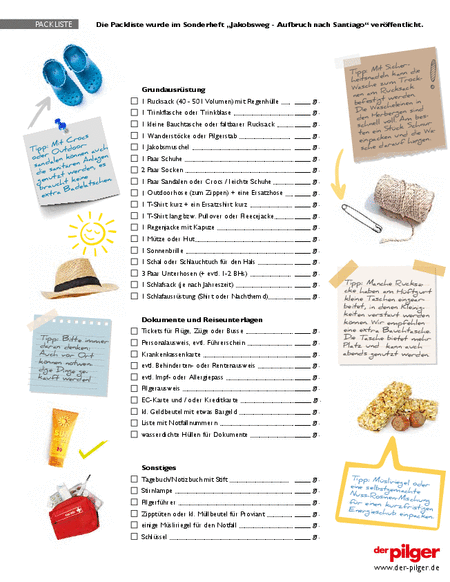 PACKLISTE
Die Packliste wurde im Sonderheft „Jakobsweg - Aufbruch nach Santiago“ veröffentlicht.
Grundausrüstung
1 Rucksack (40 - 50 l Volumen) mit Regenhülle ___ g
1 Trinkflasche oder Trinkblase ___ g
1 kleine Bauchtasche oder faltbarer Rucksack ___ g
1 Wanderstöcke oder Pilgerstab ___ g
1 Jakobsmuschel ___ g
1 Paar Schuhe ___ g
2 Paar Socken ___ g
1 Paar Sandalen oder Crocs / leichte Schuhe ___ g
1 Outdoorhose (zum Zippen) + eine Ersatzhose ___ g
1 T-Shirt kurz + ein Ersatzshirt kurz ___ g
1 T-Shirt lang bzw. Pullover oder Fleecejacke ___ g
1 Regenjacke mit Kapuze ___ g
1 Mütze oder Hut ___ g
1 Sonnenbrille ___ g
1 Schal oder Schlauchtuch für den Hals ___ g
3 Paar Unterhosen (+ evtl. 1-2 BHs) ___ g
1 Schlafsack (je nach Jahreszeit) ___ g
1 Schlafausrüstung (Shirt oder Nachthemd) ___ g
Dokumente und Reiseunterlagen
Tickets für Flüge, Züge oder Busse ___ g
Personalausweis, evtl. Führerschein ___ g
Krankenkassenkarte ___ g
evtl. Behinderten- oder Rentenausweis ___ g
evtl. Impf- oder Allergiepass ___ g
Pilgerausweis ___ g
EC-Karte und / oder Kreditkarte ___ g
kl. Geldbeutel mit etwas Bargeld ___ g
Liste mit Notfallnummern ___ g
wasserdichte Hüllen für Dokumente ___ g
Sonstiges
Tagebuch/Notizbuch mit Stift ___ g
Stirnlampe ___ g
Pilgerführer ___ g
Zipptüten oder kl. Müllbeutel für Proviant ___ g
einige Müsliriegel für den Notfall ___ g
Schlüssel ___ g
Tipp: Mit Crocs
oder Outdoor-
sandalen können auch
die sanitären Anlagen
genutzt werden, es
braucht keine
extra Badelatschen
Tipp: Bitte immer
daran denken:
Auch vor Ort
können notwen-
dige Dinge ge-
kauft werden!
Tipp: Mit Sicher-
heitsnadeln kann die
Wäsche zum Trock-
nen am Rucksack
befestigt werden.
Die Wäscheleinen in
den Herbergen sind
schnell voll. Am bes-
ten ein Stück Schnur
einpacken und die Wä-
sche darauf hängen.
Tipp: Manche Rucksä-
cke haben am Hüftgurt
kleine Taschen eingear-
beitet, in denen Kleinig-
keiten verstaut werden
können. Wir empfehlen
eine extra Bauchtasche.
Die Tasche bietet mehr
Platz und kann auch
abends genutzt werden
Tipp: Müsliriegel oder
eine selbstgemachte
Nuss-Rosinen-Mischung
für einen kurzfristigen
Energieschub einpacken.
der pilger
www.der-pilger.de